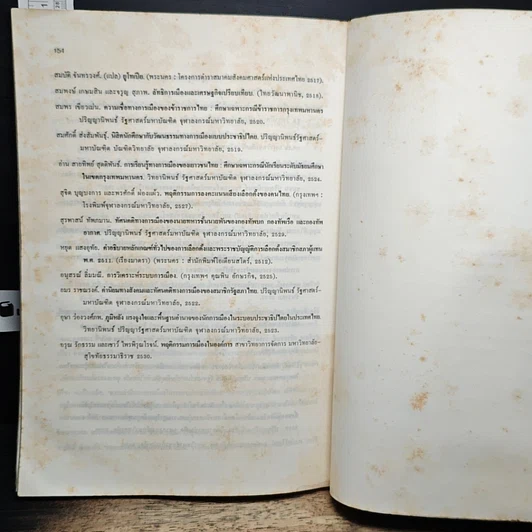 154
สมบัติ จันทรวงศ์. (แปล) ยูโทเปีย. (พระนคร : โครงการตำราสมาคมสังคมศาสตร์แห่งประเทศไทย 2517).
สมพงษ์ เกษมสิน และจรูญ สุภาพ. ลัทธิการเมืองและเศรษฐกิจเปรียบเทียบ. (ไทยวัฒนาพานิช, 2515).
สมพร เขียวเม่น. ความเชื่อทางการเมืองของข้าราชการไทย : ศึกษาเฉพาะกรณีข้าราชการกรุงเทพมหานคร
ปริญญานิพนธ์ รัฐศาสตร์มหาบัณฑิต จุฬาลงกรณ์มหาวิทยาลัย, 2520.
สมศักดิ์ ส่งสัมพันธุ์. นิสิตนักศึกษากับวัฒนธรรมทางการเมืองแบบประชาธิปไตย. ปริญญานิพนธ์ รัฐศาสตร์-
มหาบัณฑิต บัณฑิตวิทยาลัย จุฬาลงกรณ์มหาวิทยาลัย, 2519.
ท่าน สายทิพย์ สุคติพันธ์. การเรียนรู้ทางการเมืองของเยาวชนไทย : ศึกษาเฉพาะกรณีนักเรียนระดับมัธยมศึกษา
ในเขตกรุงเทพมหานคร. วิทยานิพนธ์ รัฐศาสตร์มหาบัณฑิต จุฬาลงกรณ์มหาวิทยาลัย, 2524.
สุจิต บุญบงการ และพรศักดิ์ ผ่องแผ้ว. พฤติกรรมการลงคะแนนเสียงเลือกตั้งของคนไทย. (กรุงเทพฯ :
โรงพิมพ์จุฬาลงกรณ์มหาวิทยาลัย, 2527).
สุรพาสน์ ทัพภมาน. ทัศนคติทางการเมืองของนายทหารชั้นนายพันของกองทัพบก กองทัพเรือ และกองทัพ
อากาศ. ปริญญานิพนธ์ รัฐศาสตร์มหาบัณฑิต จุฬาลงกรณ์มหาวิทยาลัย, 2520.
หยุด แสงอุทัย. คำอธิบายหลักเกณฑ์ทั่วไปของการเลือกตั้งและพระราชบัญญัติการเลือกตั้งสมาชิกสภาผู้แทน
พ.ศ. 2511. (เรียงมาตรา) (พระนคร : สำนักพิมพ์โอเดียนสโตร์, 2512).
อนุสรณ์ ลิ่มมณี. การวิเคราะห์ระบบการเมือง. (กรุงเทพฯ คุณพิน อักษรกิจ, 2525).
อมร ราชณรงค์. ค่านิยมทางสังคมและทัศนคติทางการเมืองของสมาชิกรัฐสภาไทย. ปริญญานิพนธ์ รัฐศาสตร์-
มหาบัณฑิต จุฬาลงกรณ์มหาวิทยาลัย, 2522.
ภูมิหลัง แรงจูงใจและพื้นฐานอำนาจของนักการเมืองในระบอบประชาธิปไตยในประเทศไทย.
วิทยานิพนธ์ ปริญญารัฐศาสตร์มหาบัณฑิต จุฬาลงกรณ์มหาวิทยาลัย, 2523.
อรุณ รักธรรม และเชาว์ ไพรพิรุณโรจน์. พฤติกรรมการเมืองในองค์การ สาขาวิทยาการจัดการ มหาวิทยาลัย-
สุโขทัยธรรมาธิราช 2530.